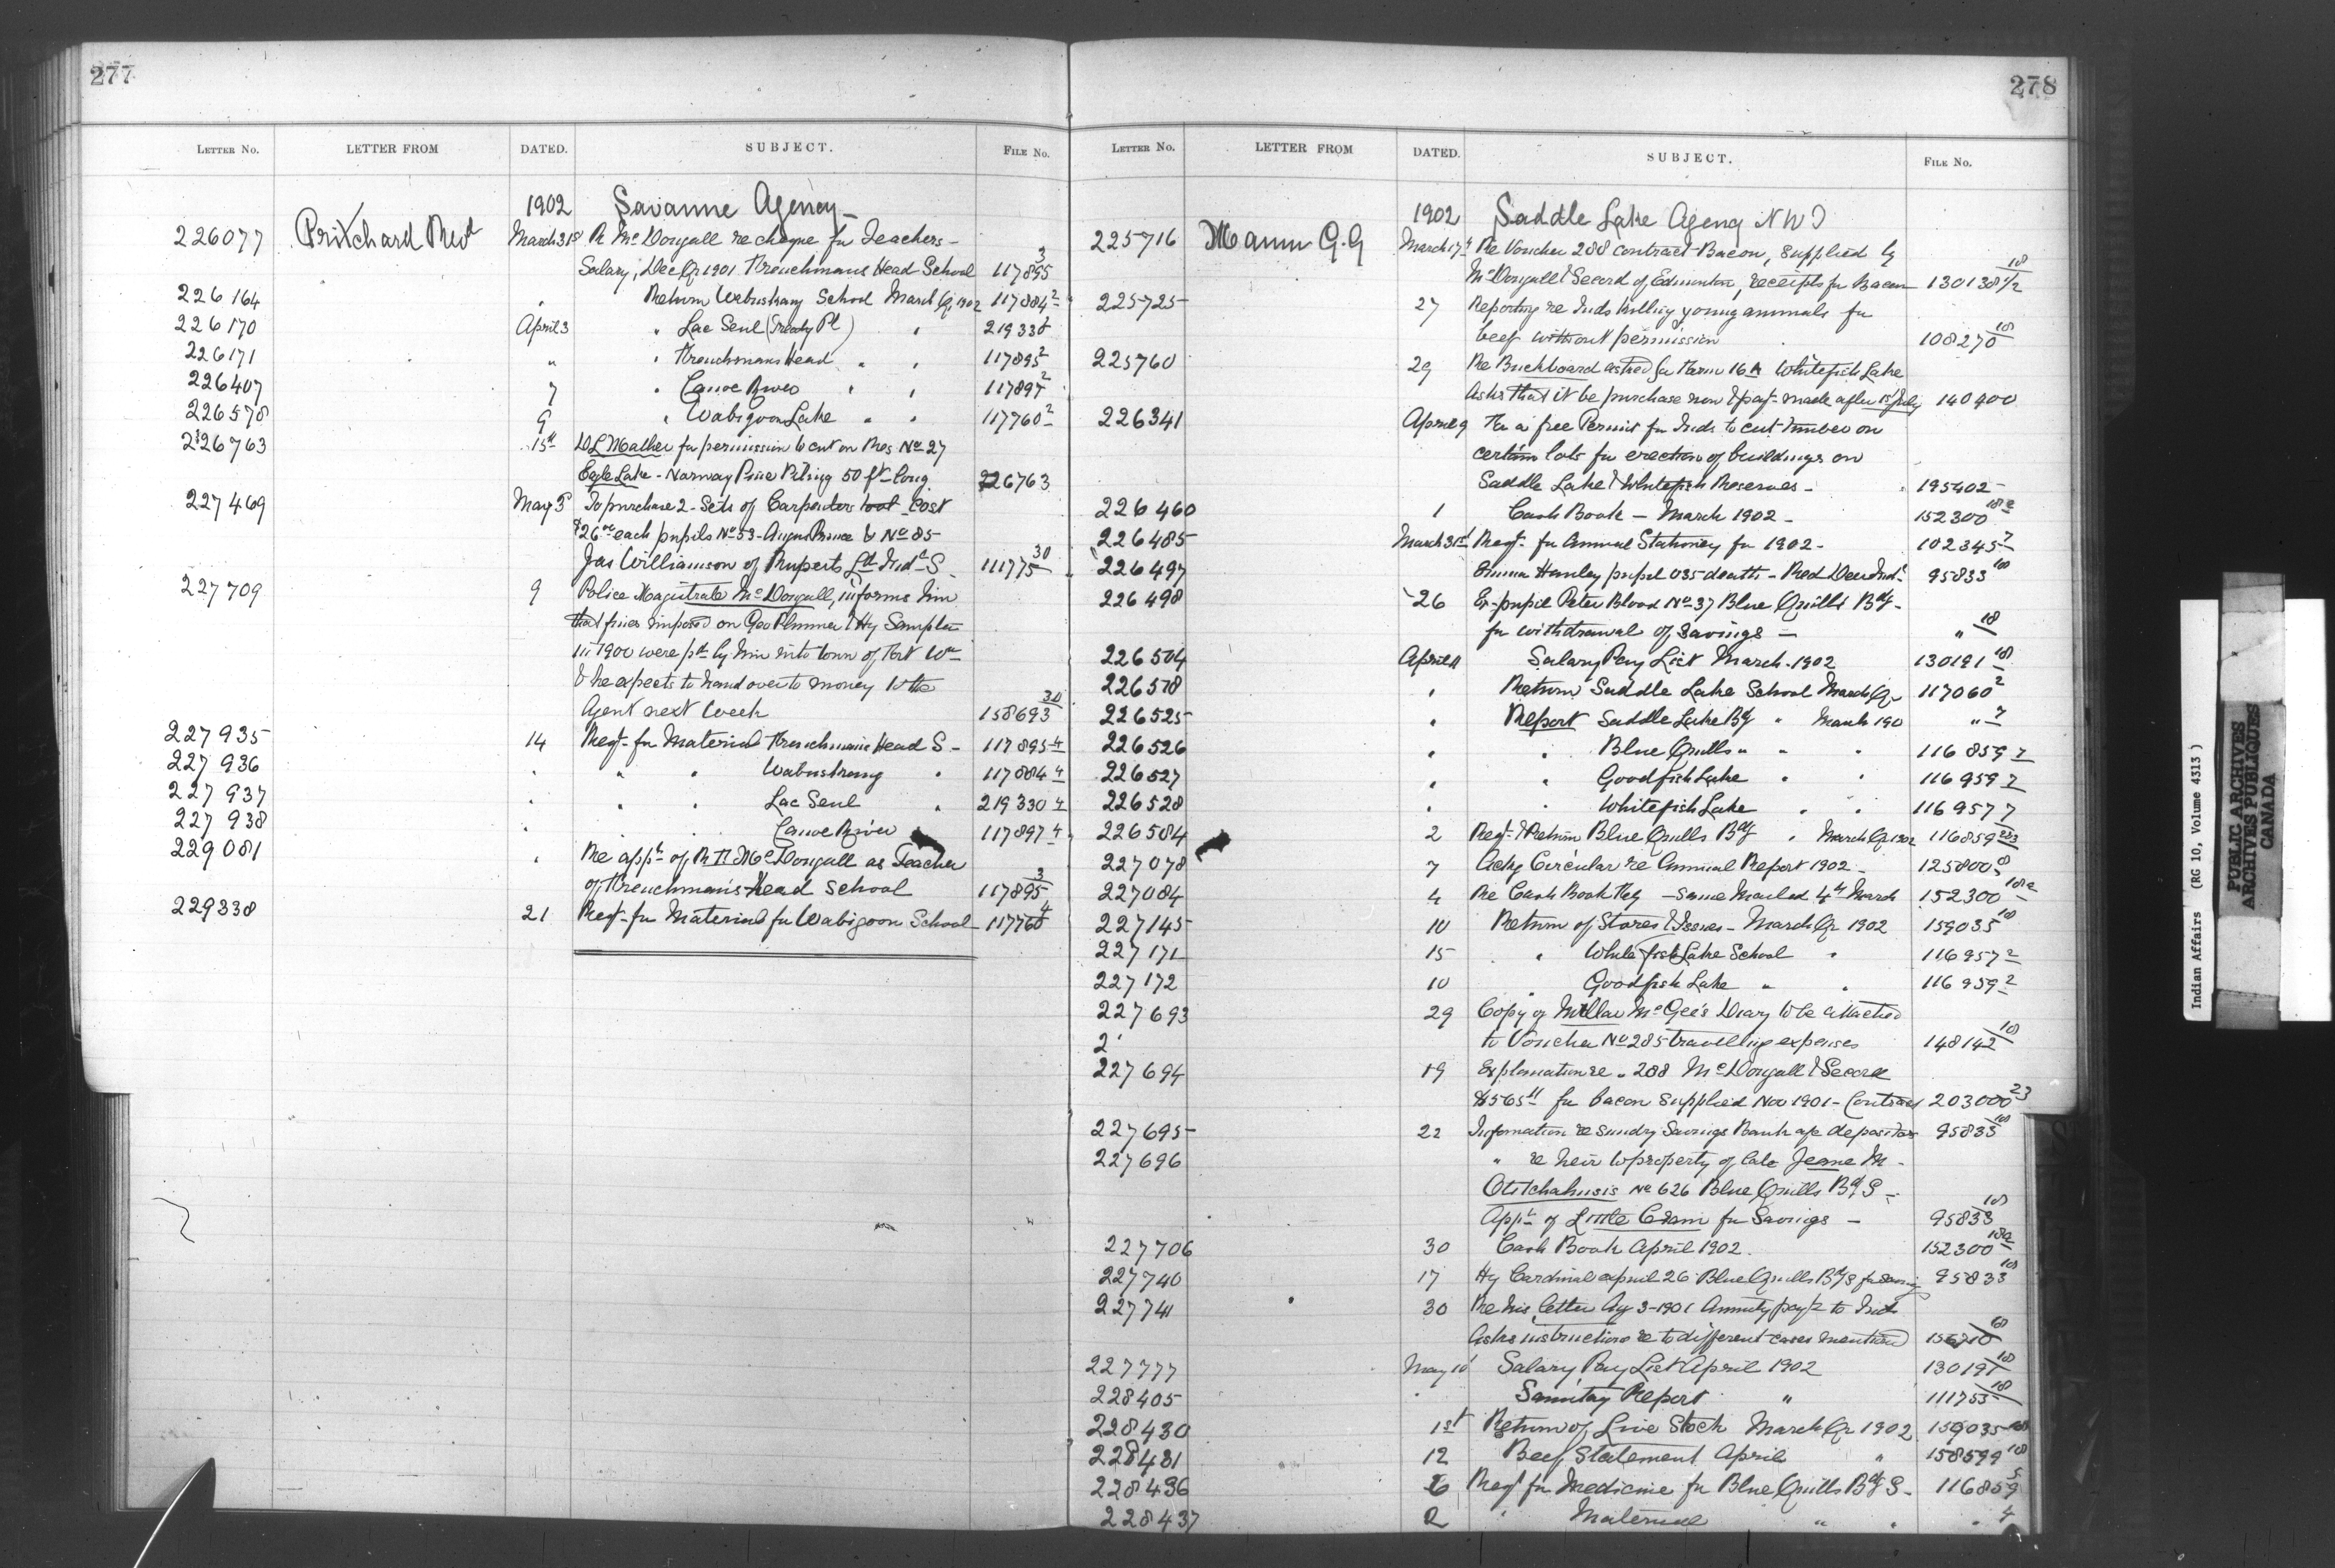 277
Letter No. LETTER FROM DATED. SUBJECT. File No.
1902 Savanne Agency -
226077 Pritchard Revd March 31st R McDougall re cheque fu Teachers -
Salary, Dec Qr 1901 Frenchmans Head School 117895 3
226164 " Return Wabuskang School March Qr 1902 117884 2
226170 April 3 " Lac Seul (Treaty Pt) " 219330 2
226171 " " Frenchmans Head " " 117895 2
226407 7 " Canoe River " " 117897 2
226578 9 " Wabigoon Lake " " 117760 2
226763 15th D L Mather fu permission to cut on Res No 27
Eagle Lake - Norway Pine Piling 50 ft long 226763
227469 May 5 To purchase 2 - Sets of Carpenters tool - Cost
$26.00 each pupils No 53 - Angus Prince & No 85 -
Jas Williamson of Ruperts Ld Indl S 111775 30
227709 9 Police Magistrate McDougall, informs him
that fines imposed on Geo Plummer & Hy Sample
in 1900 were pd by him into town of Fort Wm
& he expects to hand over to money to the
Agent next week 158693 30
227935 14 Reqt - fu Material Frenchmans Head S - 117895 4
227936 " " " Wabuskang " 117884 4
227937 " " " Lac Seul " 219330 4
227938 " Canoe River 117897 4
229081 " Re appt of R H McDougall as Teacher
of Frenchman's Head School 117895 3
229338 21 Reqt - fu Material fu Wabigoon School 117760 4
278
Letter No. LETTER FROM DATED. SUBJECT. File No.
1902 Saddle Lake Agency NWT
225716 Mann G.G March 17th Re Voucher 288 contract Bacon, supplied by
McDougall & Secord of Edmonton, receipts fu Bacon 130138 18
225725 27 Reporting re Inds killing young animals fu
beef without permission 108270 18
225760 29 Re Buckboard asked fu Farm 16A Whitefish Lake
Asks that it be purchase now & payt - made after 1st July 140400
226341 April 9 Fu a free Permit fu Inds to cut timber on
certain lots fu erection of buildings on
Saddle Lake & Whitefish Reserves - 195402
226460 1 Cash Book - March 1902 - 152300 18a
226485 March 31st Reqt - fu Annual Stationery fu 1902 - 102345 7
226497 Emma Hanley pupil 035 death - Red Deer Indl 95833 18
226498 26 Ex-pupil Peter Blood No 37 Blue Quills Bdg -
fu withdrawal of savings - " 18
226504 April 4 Salary Pay List March - 1902 130191 18
226518 " Return Saddle Lake School March Qr 117060 2
226525 " Report Saddle Lake Bdg " March 190 " 7
226526 " " Blue Quills " " " 116859 7
226527 " " Goodfish Lake " " 116959 7
226528 " " Whitefish Lake " " 116957 7
226584 2 Reqt & Return Blue Quills Bdg " March Qr 1902 116859 2&3
227078 7 Ackg Circular re Annual Report 1902 - 125800 8
227084 4 Re Cash Book Feby - Same Mailed 4th March 152300 18a
227145 10 Return of Stores & Issues - March Qr 1902 159035 18
227171 15 " White fish Lake School " 116957 2
227172 10 Goodfish Lake " " 116959 2
227693 29 Copy of Millar McGee's Diary to be attached
2 to Voucher No 285 travelling expenses 148142 18
227694 19 Explanation re " 288 McDougall & Secord
$565 11 fu bacon supplied Nov 1901 - Contract 203000 23
227695 22 Information re sundry Savings Bank a/c depositors 95833 18
227696 " re heir to property of late Jeane M -
Otitchahusis No 626 Blue Quills Bdg S -
Appt of Little Cram fu Savings - 95833 18
227706 30 Cash Book April 1902 152300 18a
227740 17 Hy Cardinal expuil 26 Blue Quills Bdg S fu Saving 95833 18
227741 30 Re his letter Ag 3 - 1901 Annuity payt to Inds
Asks instructions re to different cases mentioned 18
227777 May 10 Salary Pay List April 1902 130191 18
228405 " Sanitay Report " 111753 18
228430 1st Return of Live Stock March Qr 1902 159035 18
228431 12 Beef Statement April " 158599 18
228436 6 Reqt fu Medicine fu Blue Quills Bdg S - 116859 5
228437 2 " Material " " " 4
Indian Affairs (RG 10, Volume 4313)
PUBLIC ARCHIVES
ARCHIVES PUBLIQUES
CANADA